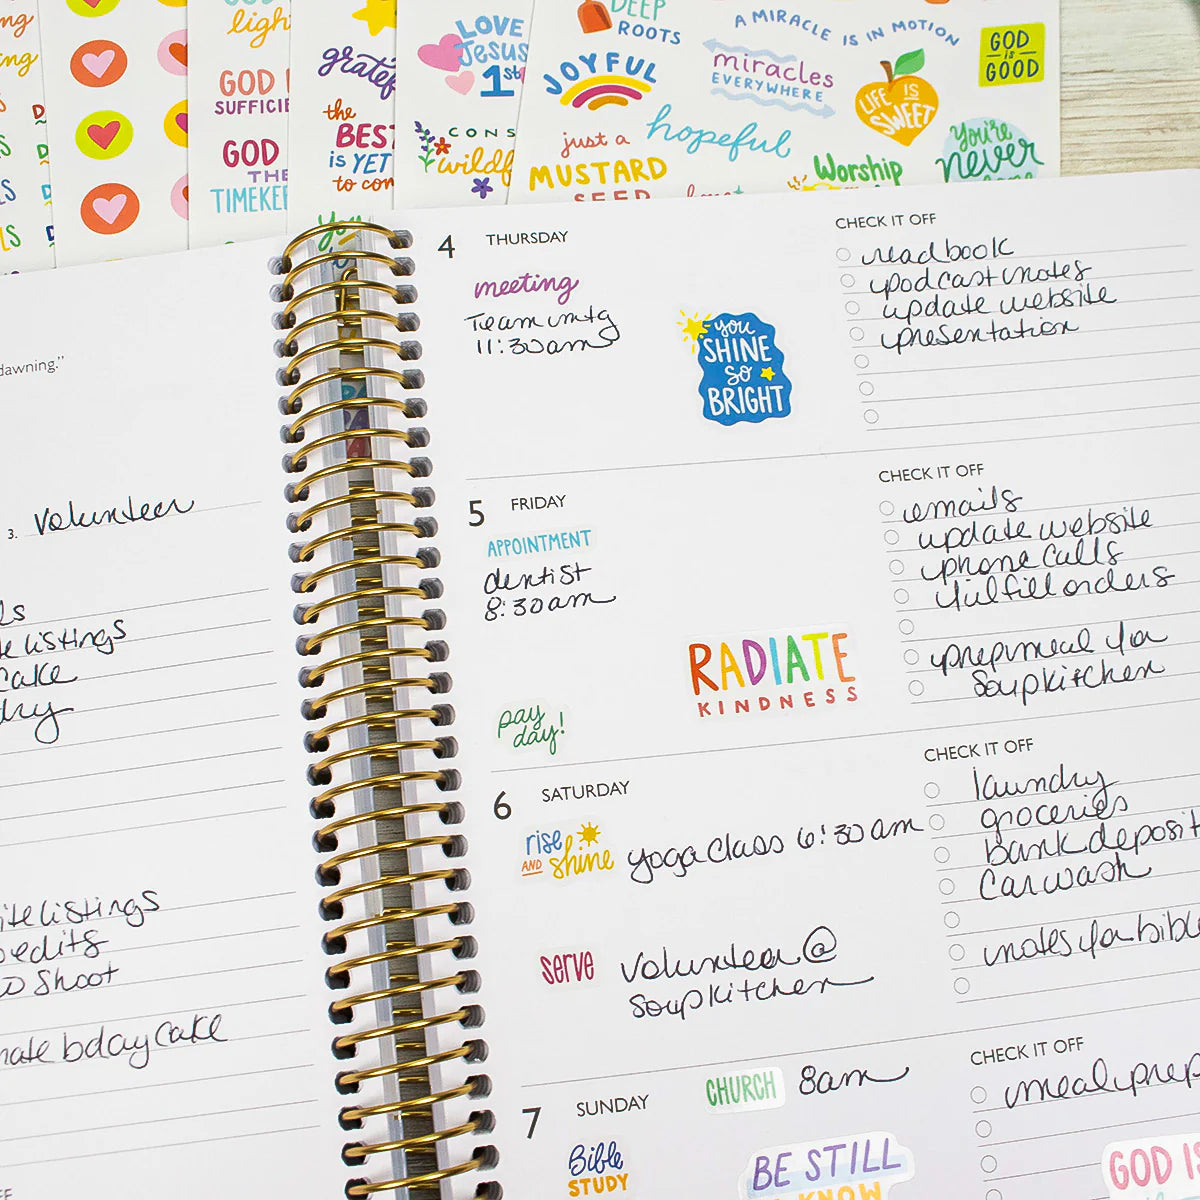 GOD
SUFFICIE
GOD
THE
TIMEKE
gratef
the
BEST
is YET
to com
LOVE
Jesus
1st
CONS
wildf
DEEP
ROOTS
JOYFUL
just a
MUSTARD
SEED
A MIRACLE IS IN MOTION
miracles
EVERYWHERE
hopeful
LIFE IS
SWEET
Worship
GOD
is
GOOD
You're
never
dawning."
3. Volunteer
listings
cake
listings
edits
Shoot
bday cake
4 THURSDAY
meeting
Team mtg
11:30am
you
SHINE
SO
BRIGHT
CHECK IT OFF
read book
podcast notes
update website
presentation
5 FRIDAY
APPOINTMENT
dentist
8:30am
pay
day!
RADIATE
KINDNESS
CHECK IT OFF
emails
update website
phone calls
fulfill orders
prep meal for
Soup kitchen
6 SATURDAY
rise
AND shine
yoga class 6:30am
serve
Volunteer @
Soup kitchen
CHECK IT OFF
laundry
groceries
bank deposit
car wash
notes for bible
7 SUNDAY
CHURCH
8am
Bible
STUDY
BE STILL
KNOW
CHECK IT OFF
meal prep
GOD IS